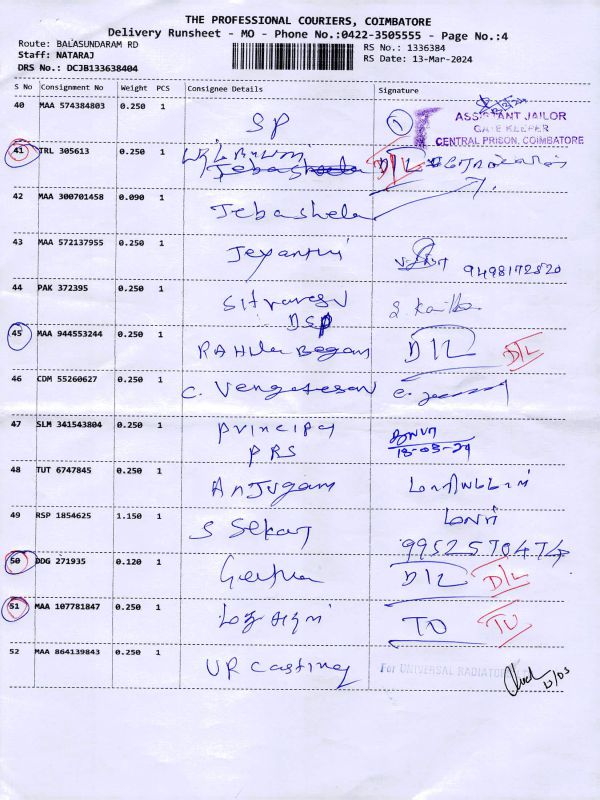 THE PROFESSIONAL COURIERS, COIMBATORE
Delivery Runsheet - MO - Phone No.:0422-3505555 - Page No.:4
Route: BALASUNDARAM RD
Staff: NATARAJ
DRS No.: DCJB133638404
RS No.: 1336384
RS Date: 13-Mar-2024
S No Consignment No Weight PCS Consignee Details Signature
40 MAA 574384803 0.250 1 SP 1
ASSISTANT JAILOR
GATE KEEPER
CENTRAL PRISON, COIMBATORE
41 TRL 305613 0.250 1 D/L
42 MAA 300701458 0.090 1 Jebasheela
43 MAA 572137955 0.250 1 Jeyanthi 9498172520
44 PAK 372395 0.250 1
DSP
45 MAA 944553244 0.250 1 RAHila Begam D/L D/L
46 CDM 55260627 0.250 1 C. Vengatesan
47 SLM 341543804 0.250 1 principal
PRS 13-03-24
48 TUT 6747845 0.250 1 Anjugam
49 RSP 1854625 1.150 1 S Sekar
9952570474
50 DDG 271935 0.120 1 Geetha D/L D/L
51 MAA 107781847 0.250 1 TO TO
52 MAA 864139843 0.250 1 UR Casting For UNIVERSAL RADIATORS
13/03